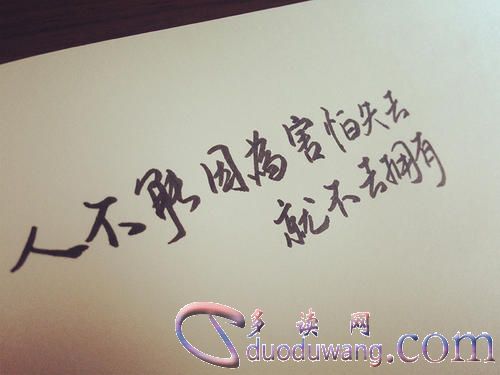 人不能因為害怕失去
就不去拥有
多读网
duoduwang.com